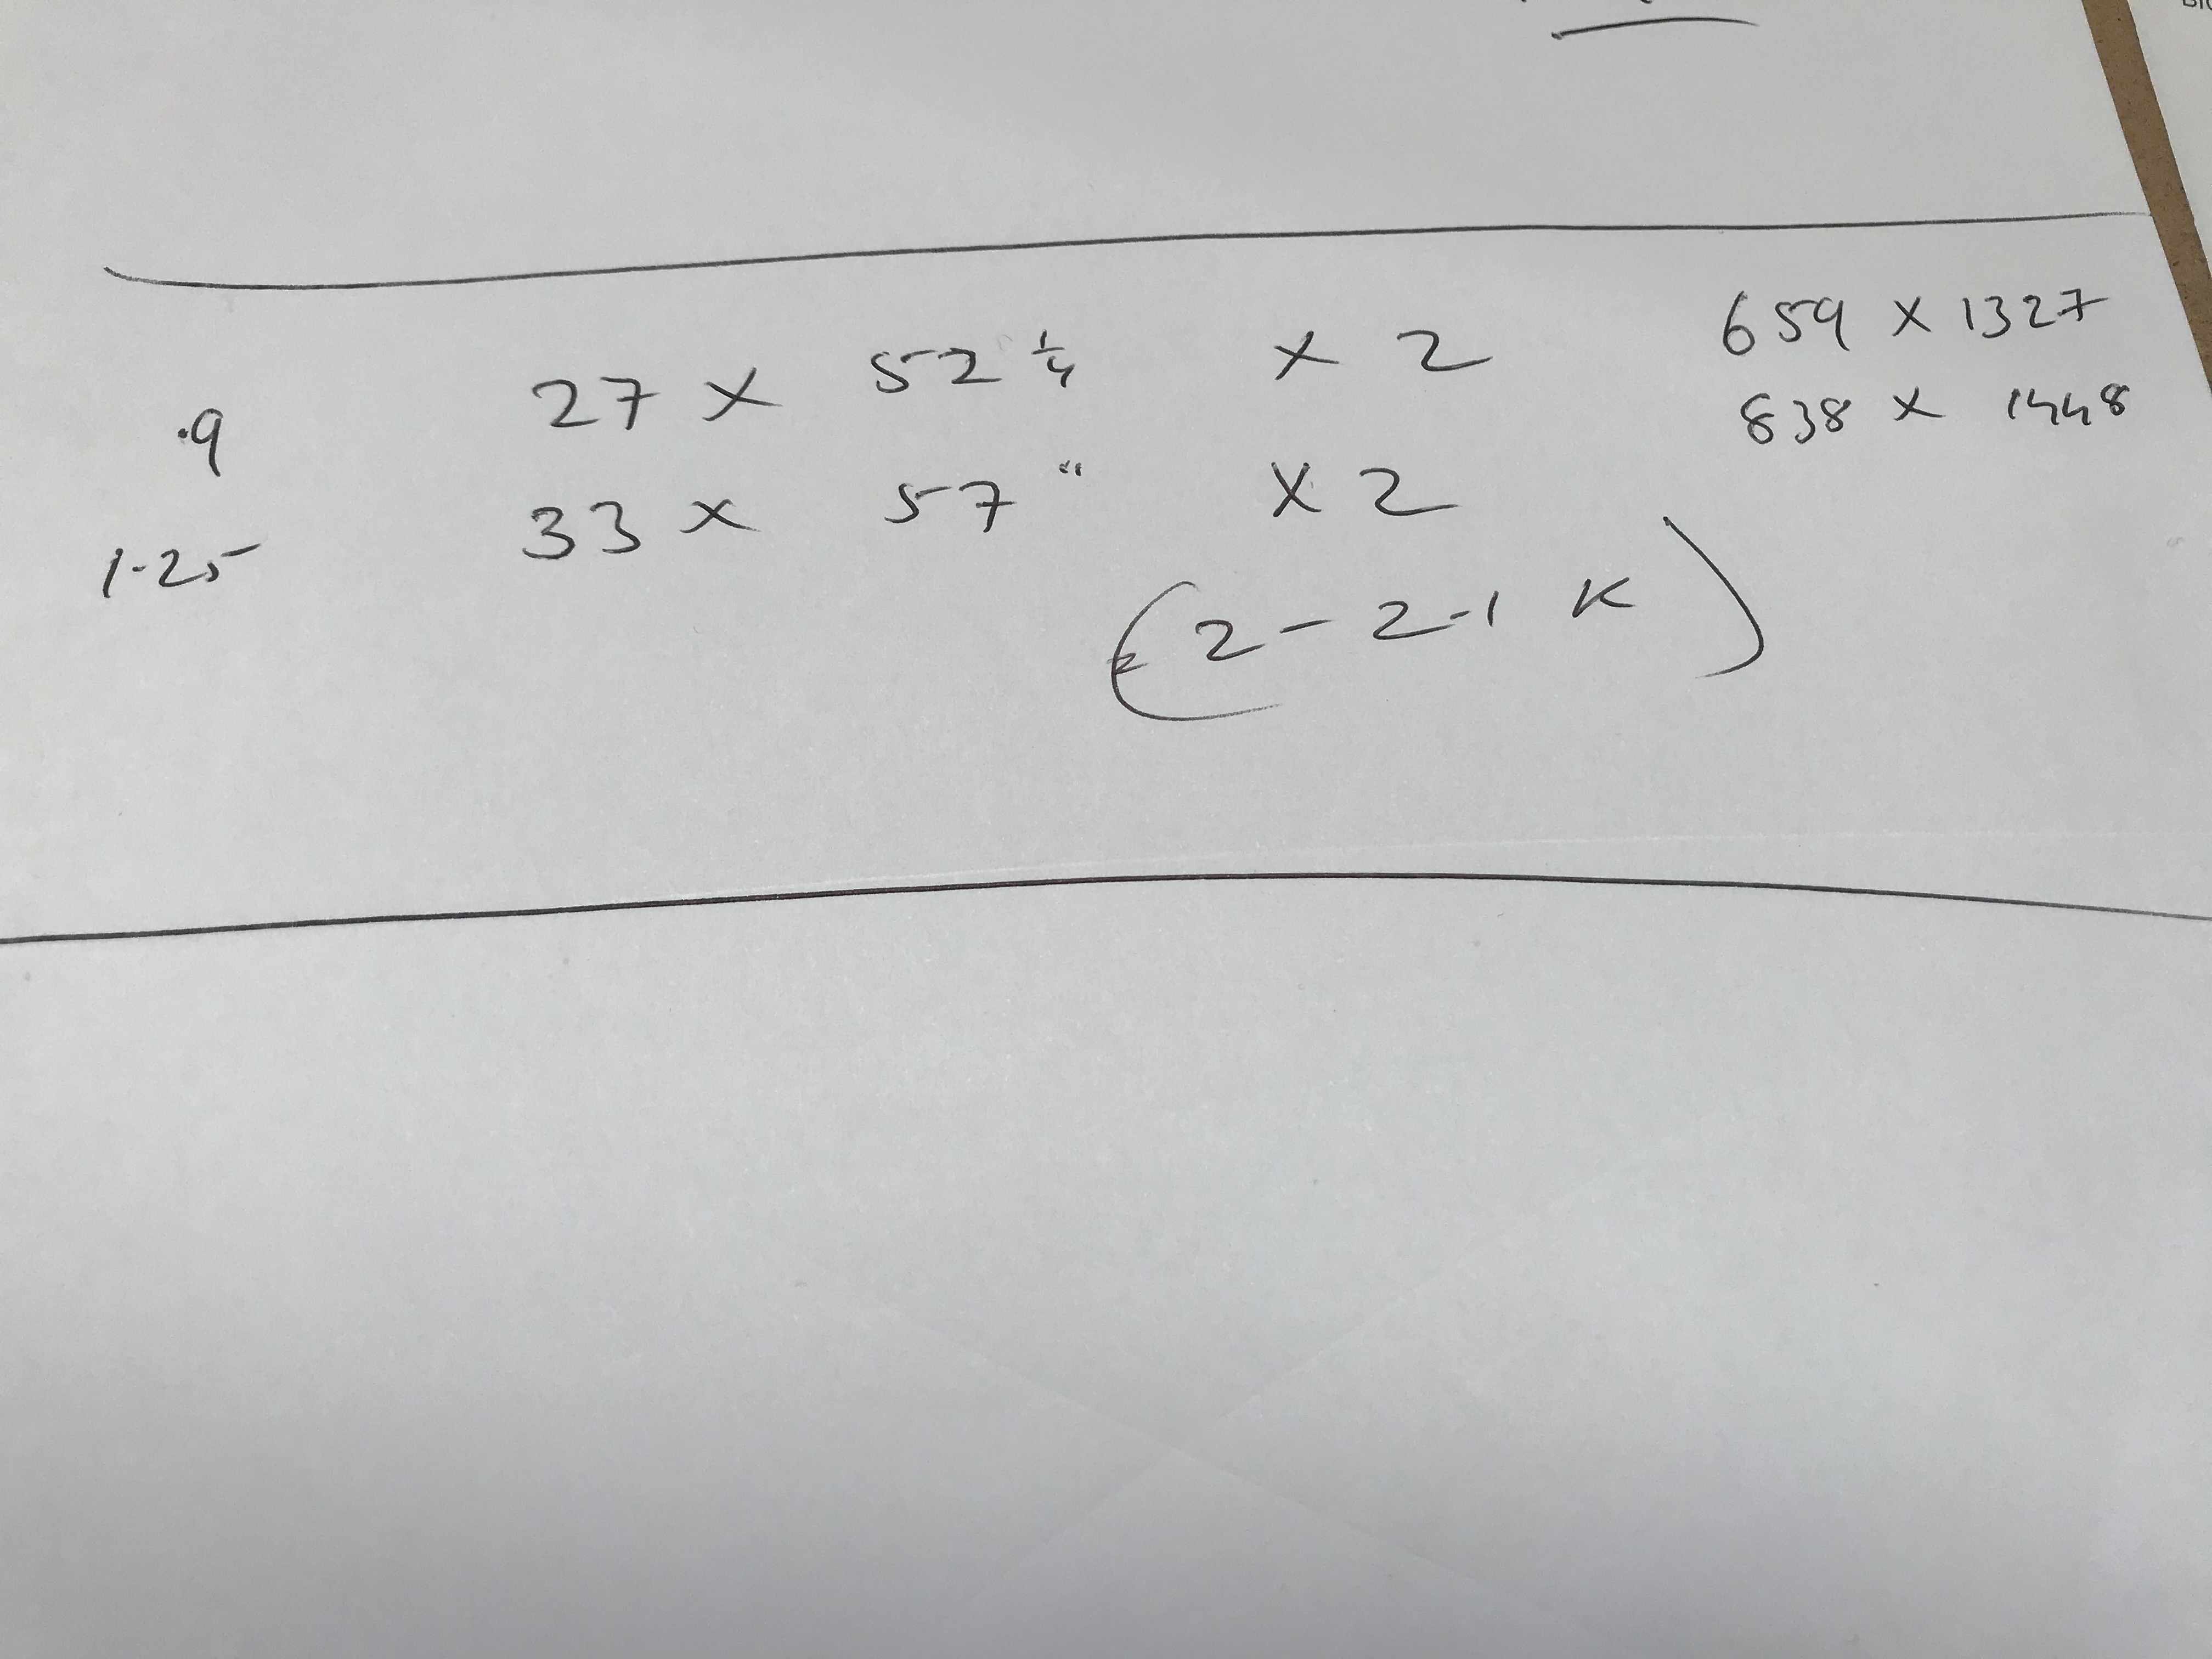 .9 27 x 52 1/4 x 2 659 x 1327
1.25 33 x 57" x 2 838 x 1448
(2 - 2.1 K)